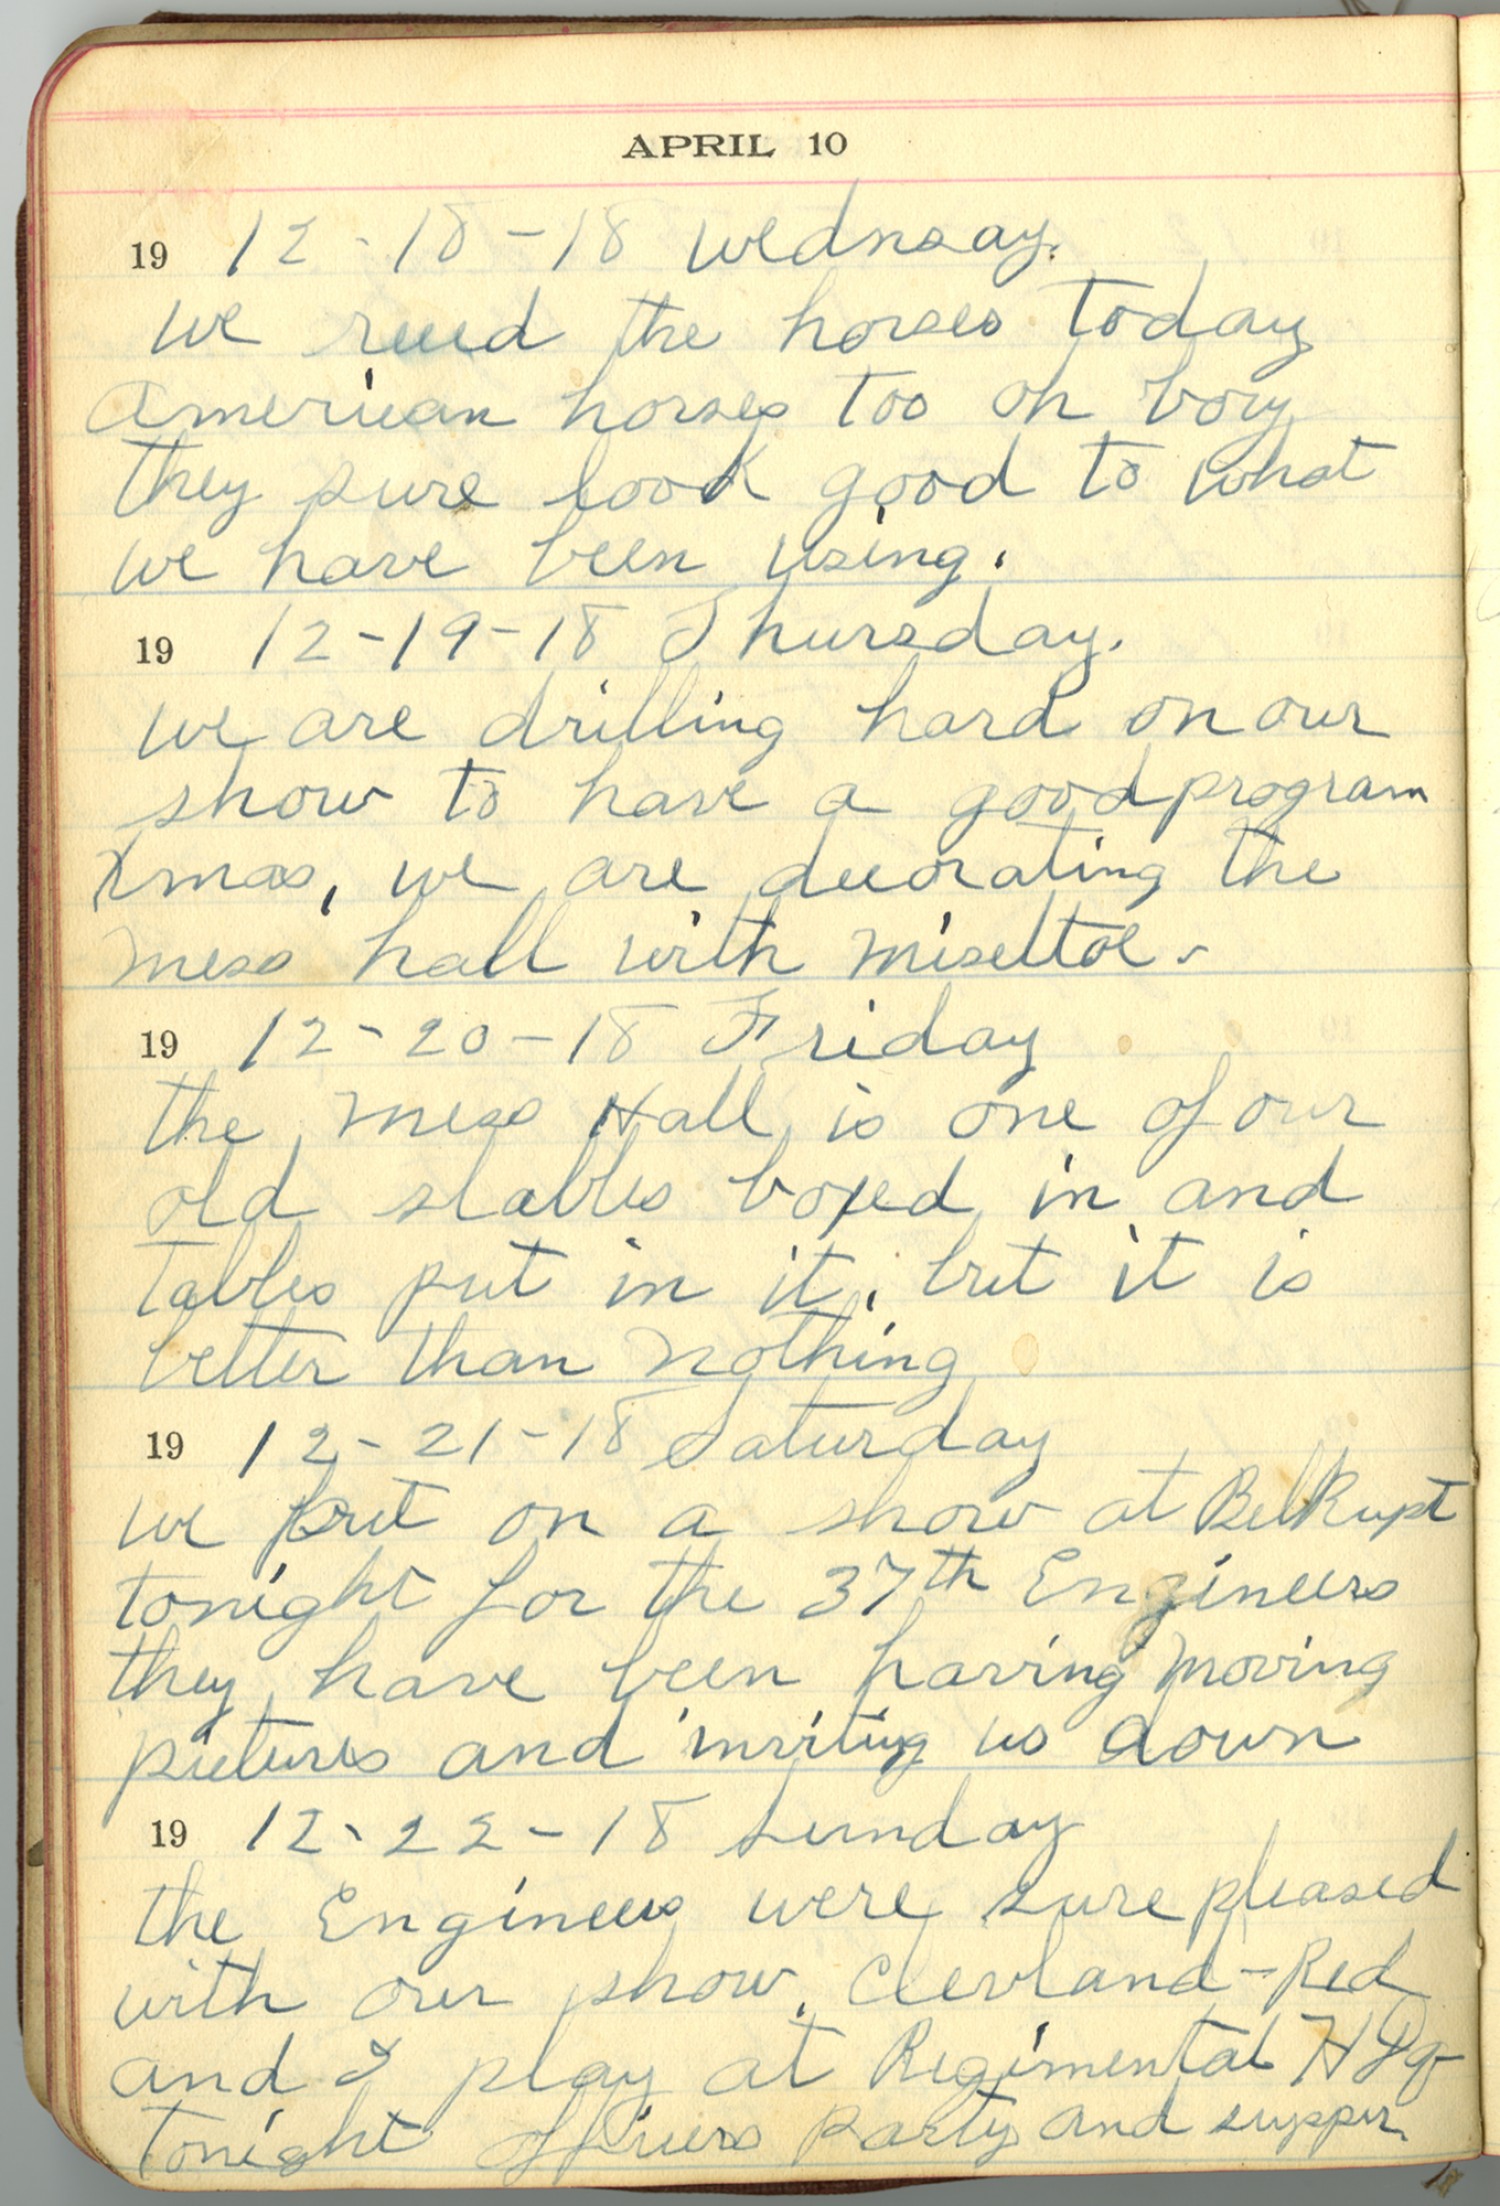 APRIL 10
19 12-18-18 Wednsay.
we recd the horses today
American horses too oh boy
they sure look good to what
we have been using.
19 12-19-18 Thursday.
we are drilling hard on our
show to have a good program
Xmas, we are decorating the
mess hall with miseltoe.
19 12-20-18 Friday
the mess Hall is one of our
old stables boxed in and
Tables put in it, but it is
better than nothing
19 12-21-18 Saturday
we put on a show at BelRupt
tonight for the 37th Engineers
they have been having moving
pictures and inviting us down
19 12-22-18 Sunday
the Engineers were sure pleased
with our show. Clevland-Red
and I play at Regimental HDq
Tonight officers Party and supper.